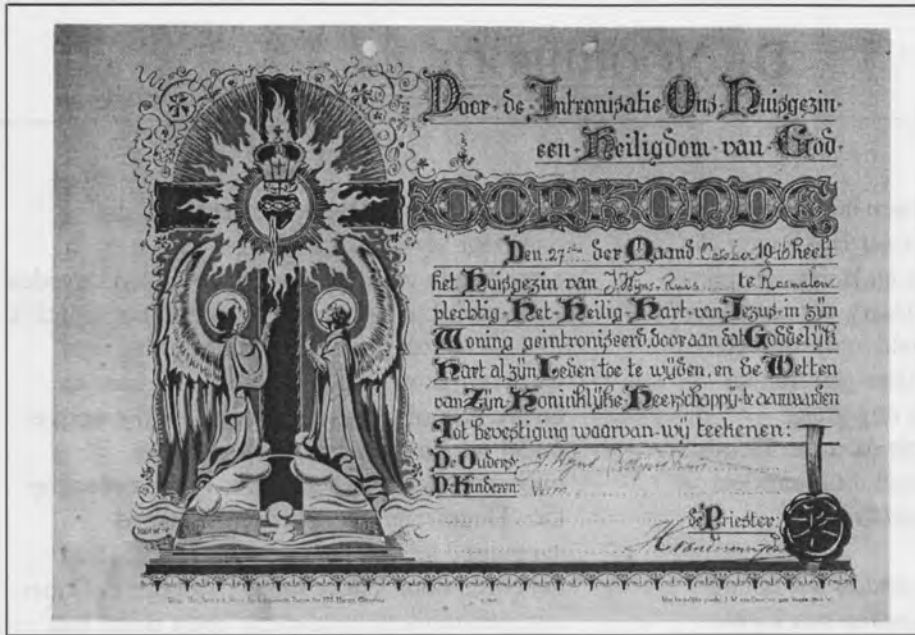 Door de Intronisatie Ons Huisgezin
een Heiligdom van God
OORKONDE
Den 27ste der Maand October 19 heeft
het Huisgezin van J. Wijns-Ruis te Rosmalen
plechtig Het Heilig Hart van Jezus in zijn
Woning geintroniseerd, door aan dat Goddelijk
Hart al zijn Leden toe te wijden, en de Wetten
van Zijn Koninklijke Heerschappij te aanvaarden
Tot bevestiging waarvan wij teekenen:
De Ouders: J. Wijns
De Kinderen: Wim
de Priester: